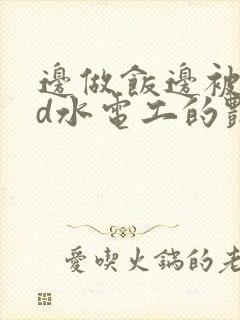 邊做飯邊被
d水電工的
愛喫火鍋的老